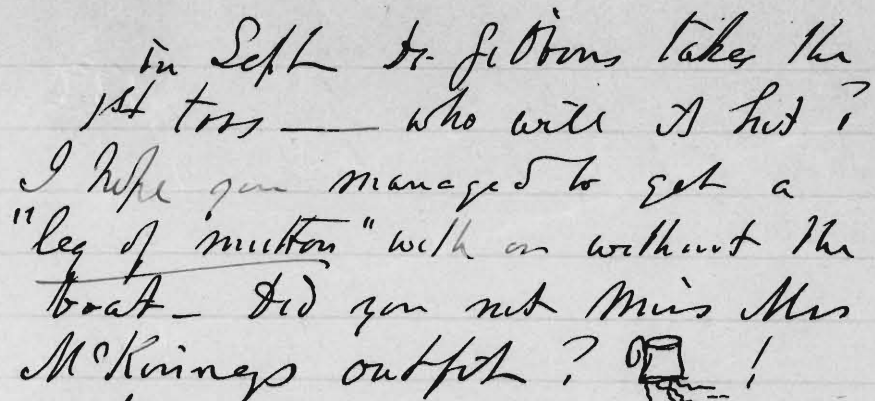 in Sept Dr. Gibbons takes the
1st toss — who will it hit?
I hope you managed to get a
"leg of mutton" with or without the
boat - Did you not miss Mrs
McKinneys outfit? !